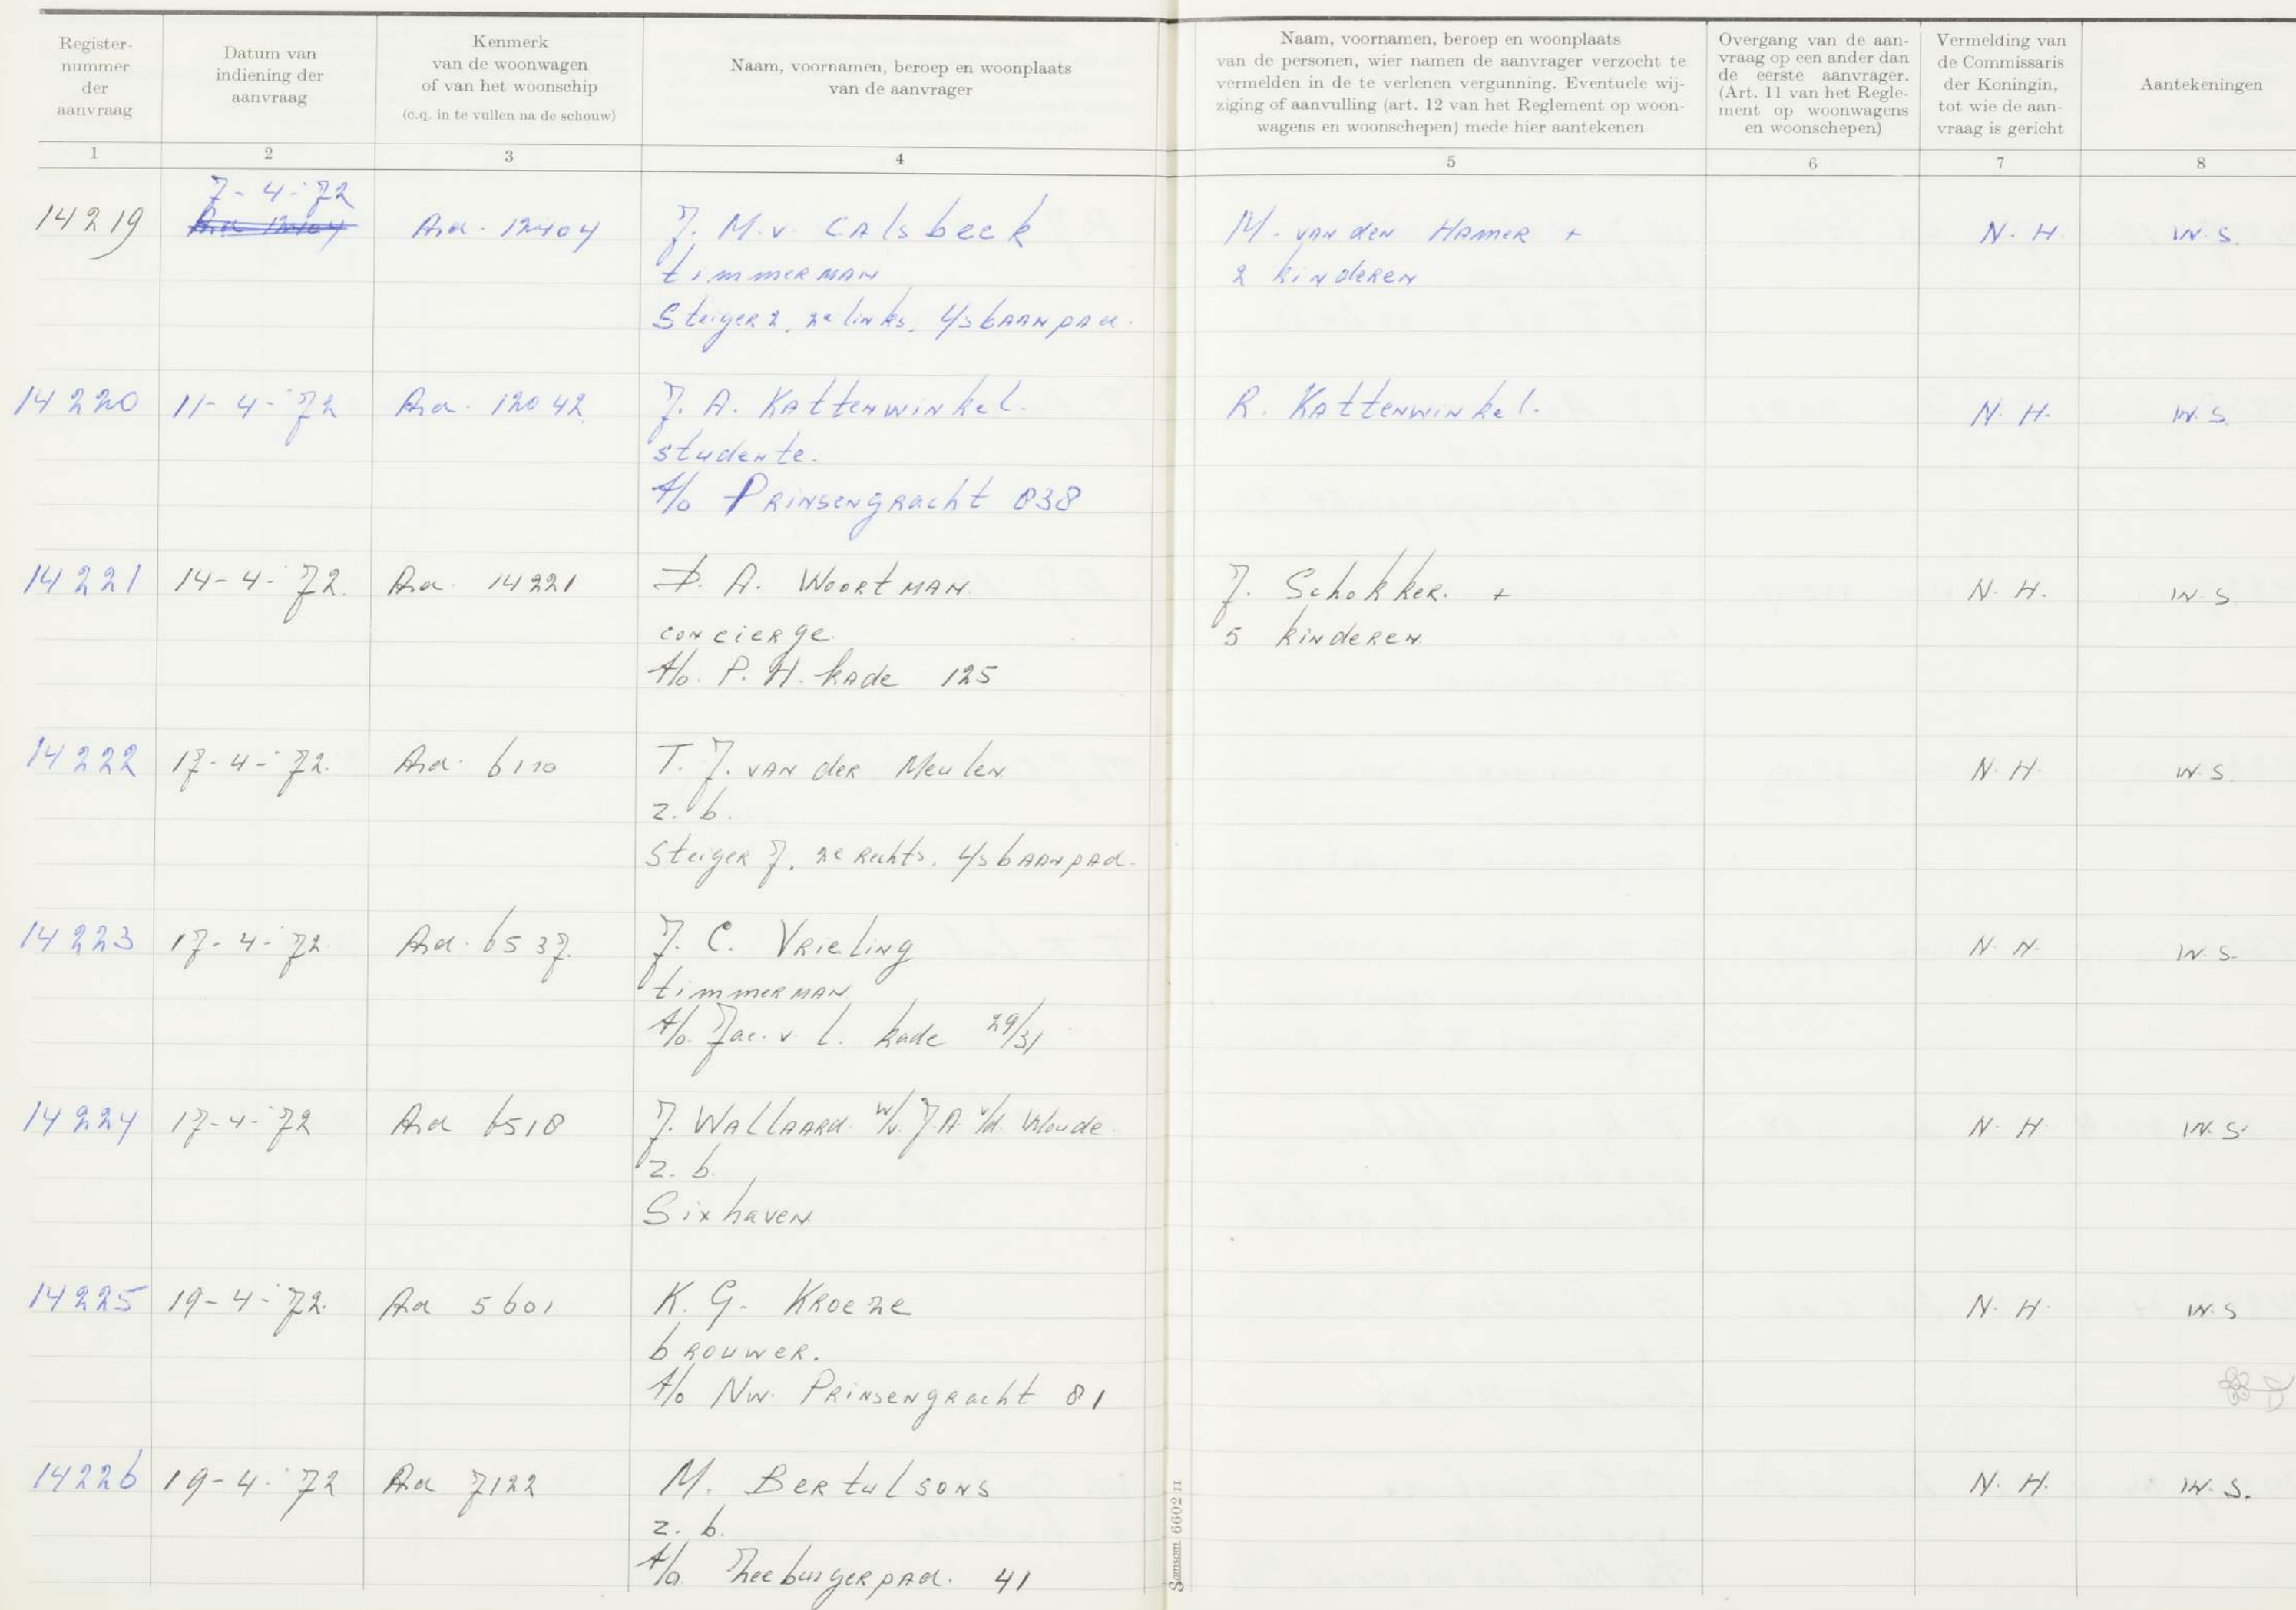 Register-
nummer
der
aanvraag
Datum van
indiening der
aanvraag
Kenmerk
van de woonwagen
of van het woonschip
(c.q. in te vullen na de schouw)
Naam, voornamen, beroep en woonplaats
van de aanvrager
Naam, voornamen, beroep en woonplaats
van de personen, wier namen de aanvrager verzocht te
vermelden in de te verlenen vergunning. Eventuele wij-
ziging of aanvulling (art. 12 van het Reglement op woon-
wagens en woonschepen) mede hier aantekenen
Overgang van de aan-
vraag op een ander dan
de eerste aanvrager.
(Art. 11 van het Regle-
ment op woonwagens
en woonschepen)
Vermelding van
de Commissaris
der Koningin,
tot wie de aan-
vraag is gericht
Aantekeningen
1 2 3 4 5 6 7 8
7-4-'72
14219 Aa 12404 Aa. 12404 J. M. v. Calsbeek M. van den Hamer + N. H. W. S.
timmerman 2 kinderen
Steiger 2, 2e links, Ysbaanpad.
14220 11-4-'72 Aa. 12042 J. A. Kattenwinkel. R. Kattenwinkel. N. H. W. S.
studente.
t/o Prinsengracht 838
14221 14-4-'72. Aa. 14221 D. A. Woortman J. Schokker. + N. H. W. S
concierge. 5 kinderen
t/o. P. H. kade 125
14222 17-4-'72. Aa. 6110 T. J. van der Meulen N. H. W. S.
z. b.
Steiger 7, 2e rechts, Ysbaanpad.
14223 17-4-'72. Aa. 6537. J. C. Vrieling N. H. W. S.
timmerman
t/o. Jac. v. L. kade 29/31
14224 17-4-'72 Aa 6518 J. Wallaard w/v. J. A. v/d. Woude. N. H. W. S.
z. b.
Sixhaven
14225 19-4-'72. Aa 5601 K. G. Kroeze N. H. W. S
brouwer.
t/o Nw. Prinsengracht 81
14226 19-4-'72 Aa 7122 M. Bertulsons N. H. W. S.
z. b.
t/o. Zeeburgerpad. 41
Samsom 6602 II